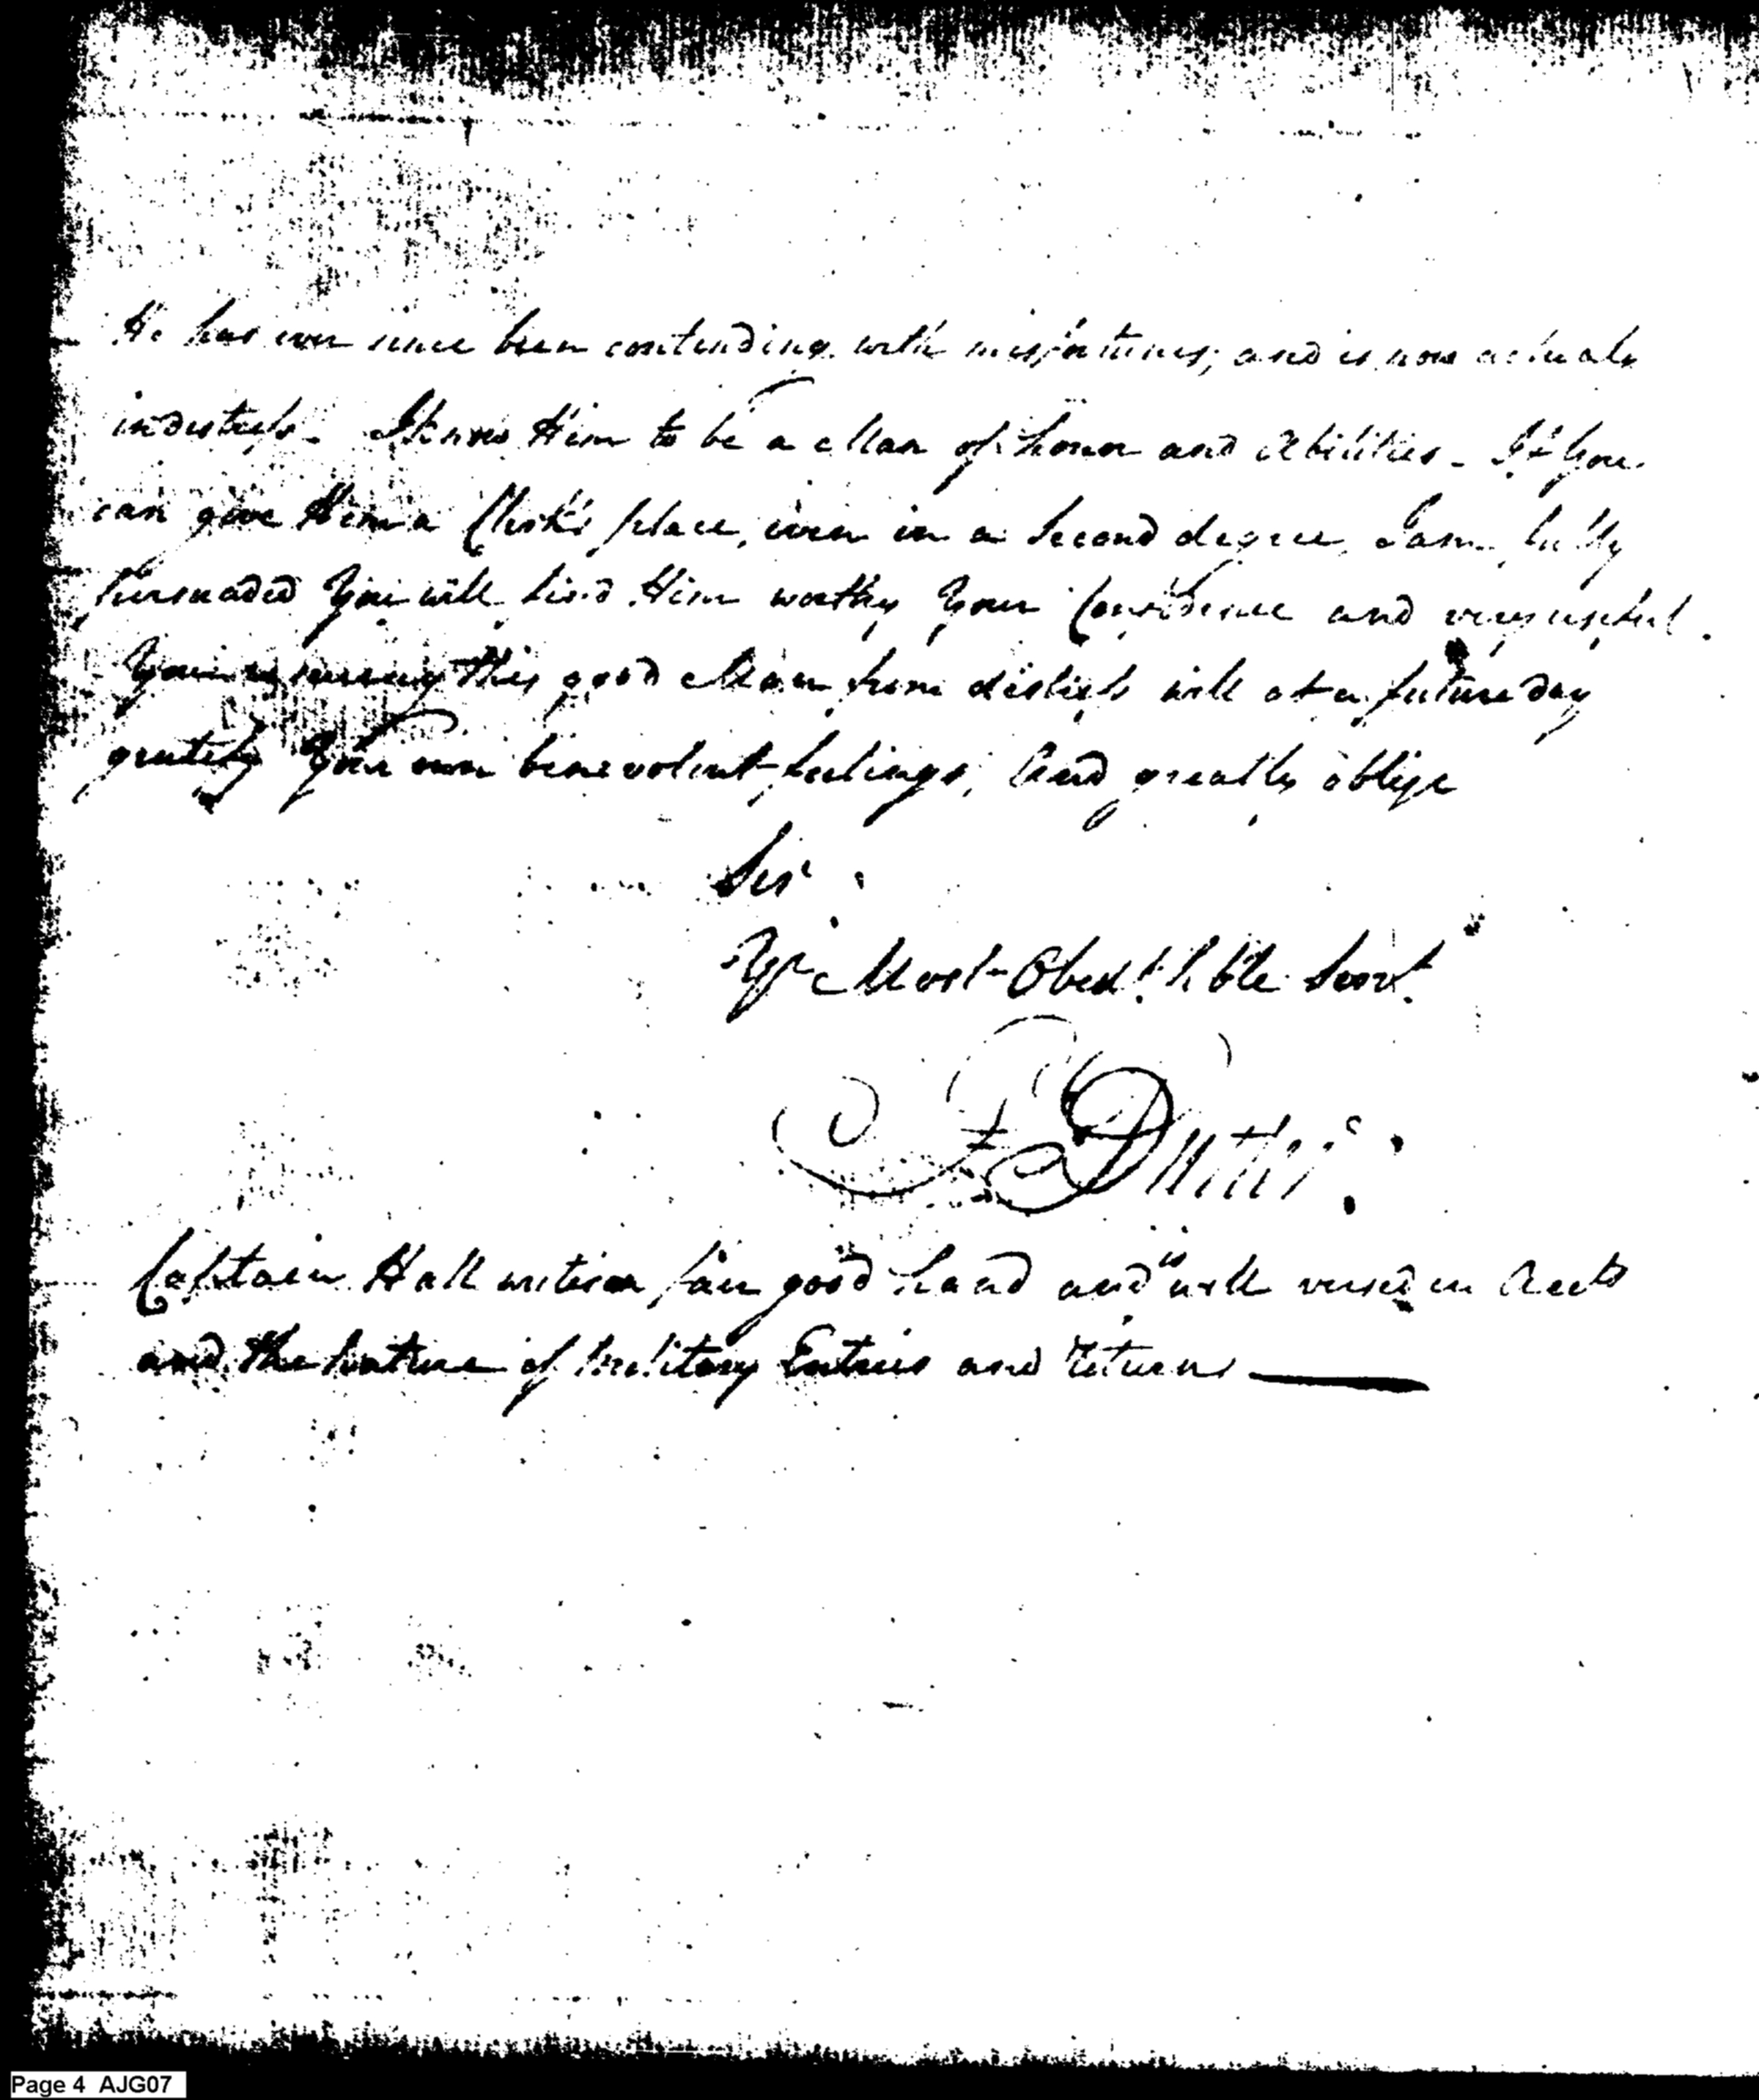 He has ever since been contending with misfortunes, and is now actualy
in distress - I know Him to be a Man of honor and Abilities - If You
can give Him a Clerk's place, even in a Second degree, I am fully
persuaded You will find Him worthy Your Confidence and very useful.
Your this good Man from distress will at a future day
gratify Your own benevolent feelings, And greatly oblige
Sir
Yr Most Obedt. hble Servt.
Captain Hall writes a fair good hand and is well versed in Accts
and the nature of Military Entries and returns
Page 4 AJG07